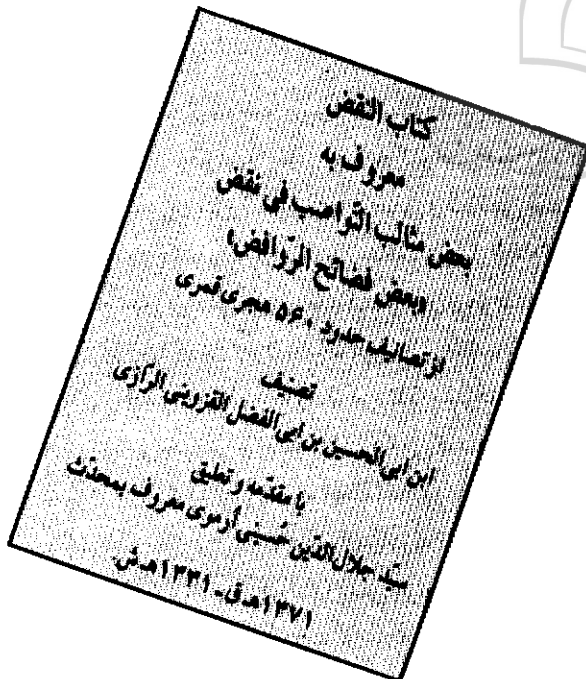 كتاب النقض
معروف به
بعض مثالب النّواصب في نقض
«بعض فضائح الرّوافض»
از تصانیف حدود ۵۶۰ هجری قمری
تصنیف
ابن ابی‌الحسین بن ابی‌الفضل القزوینی الرّازی
با مقدّمه و تعلیق
سیّد جلال‌الدّین حُسینی اُرموی معروف بمحدّث
۱۳۷۱ هـ.ق - ۱۳۳۱ هـ.ش.